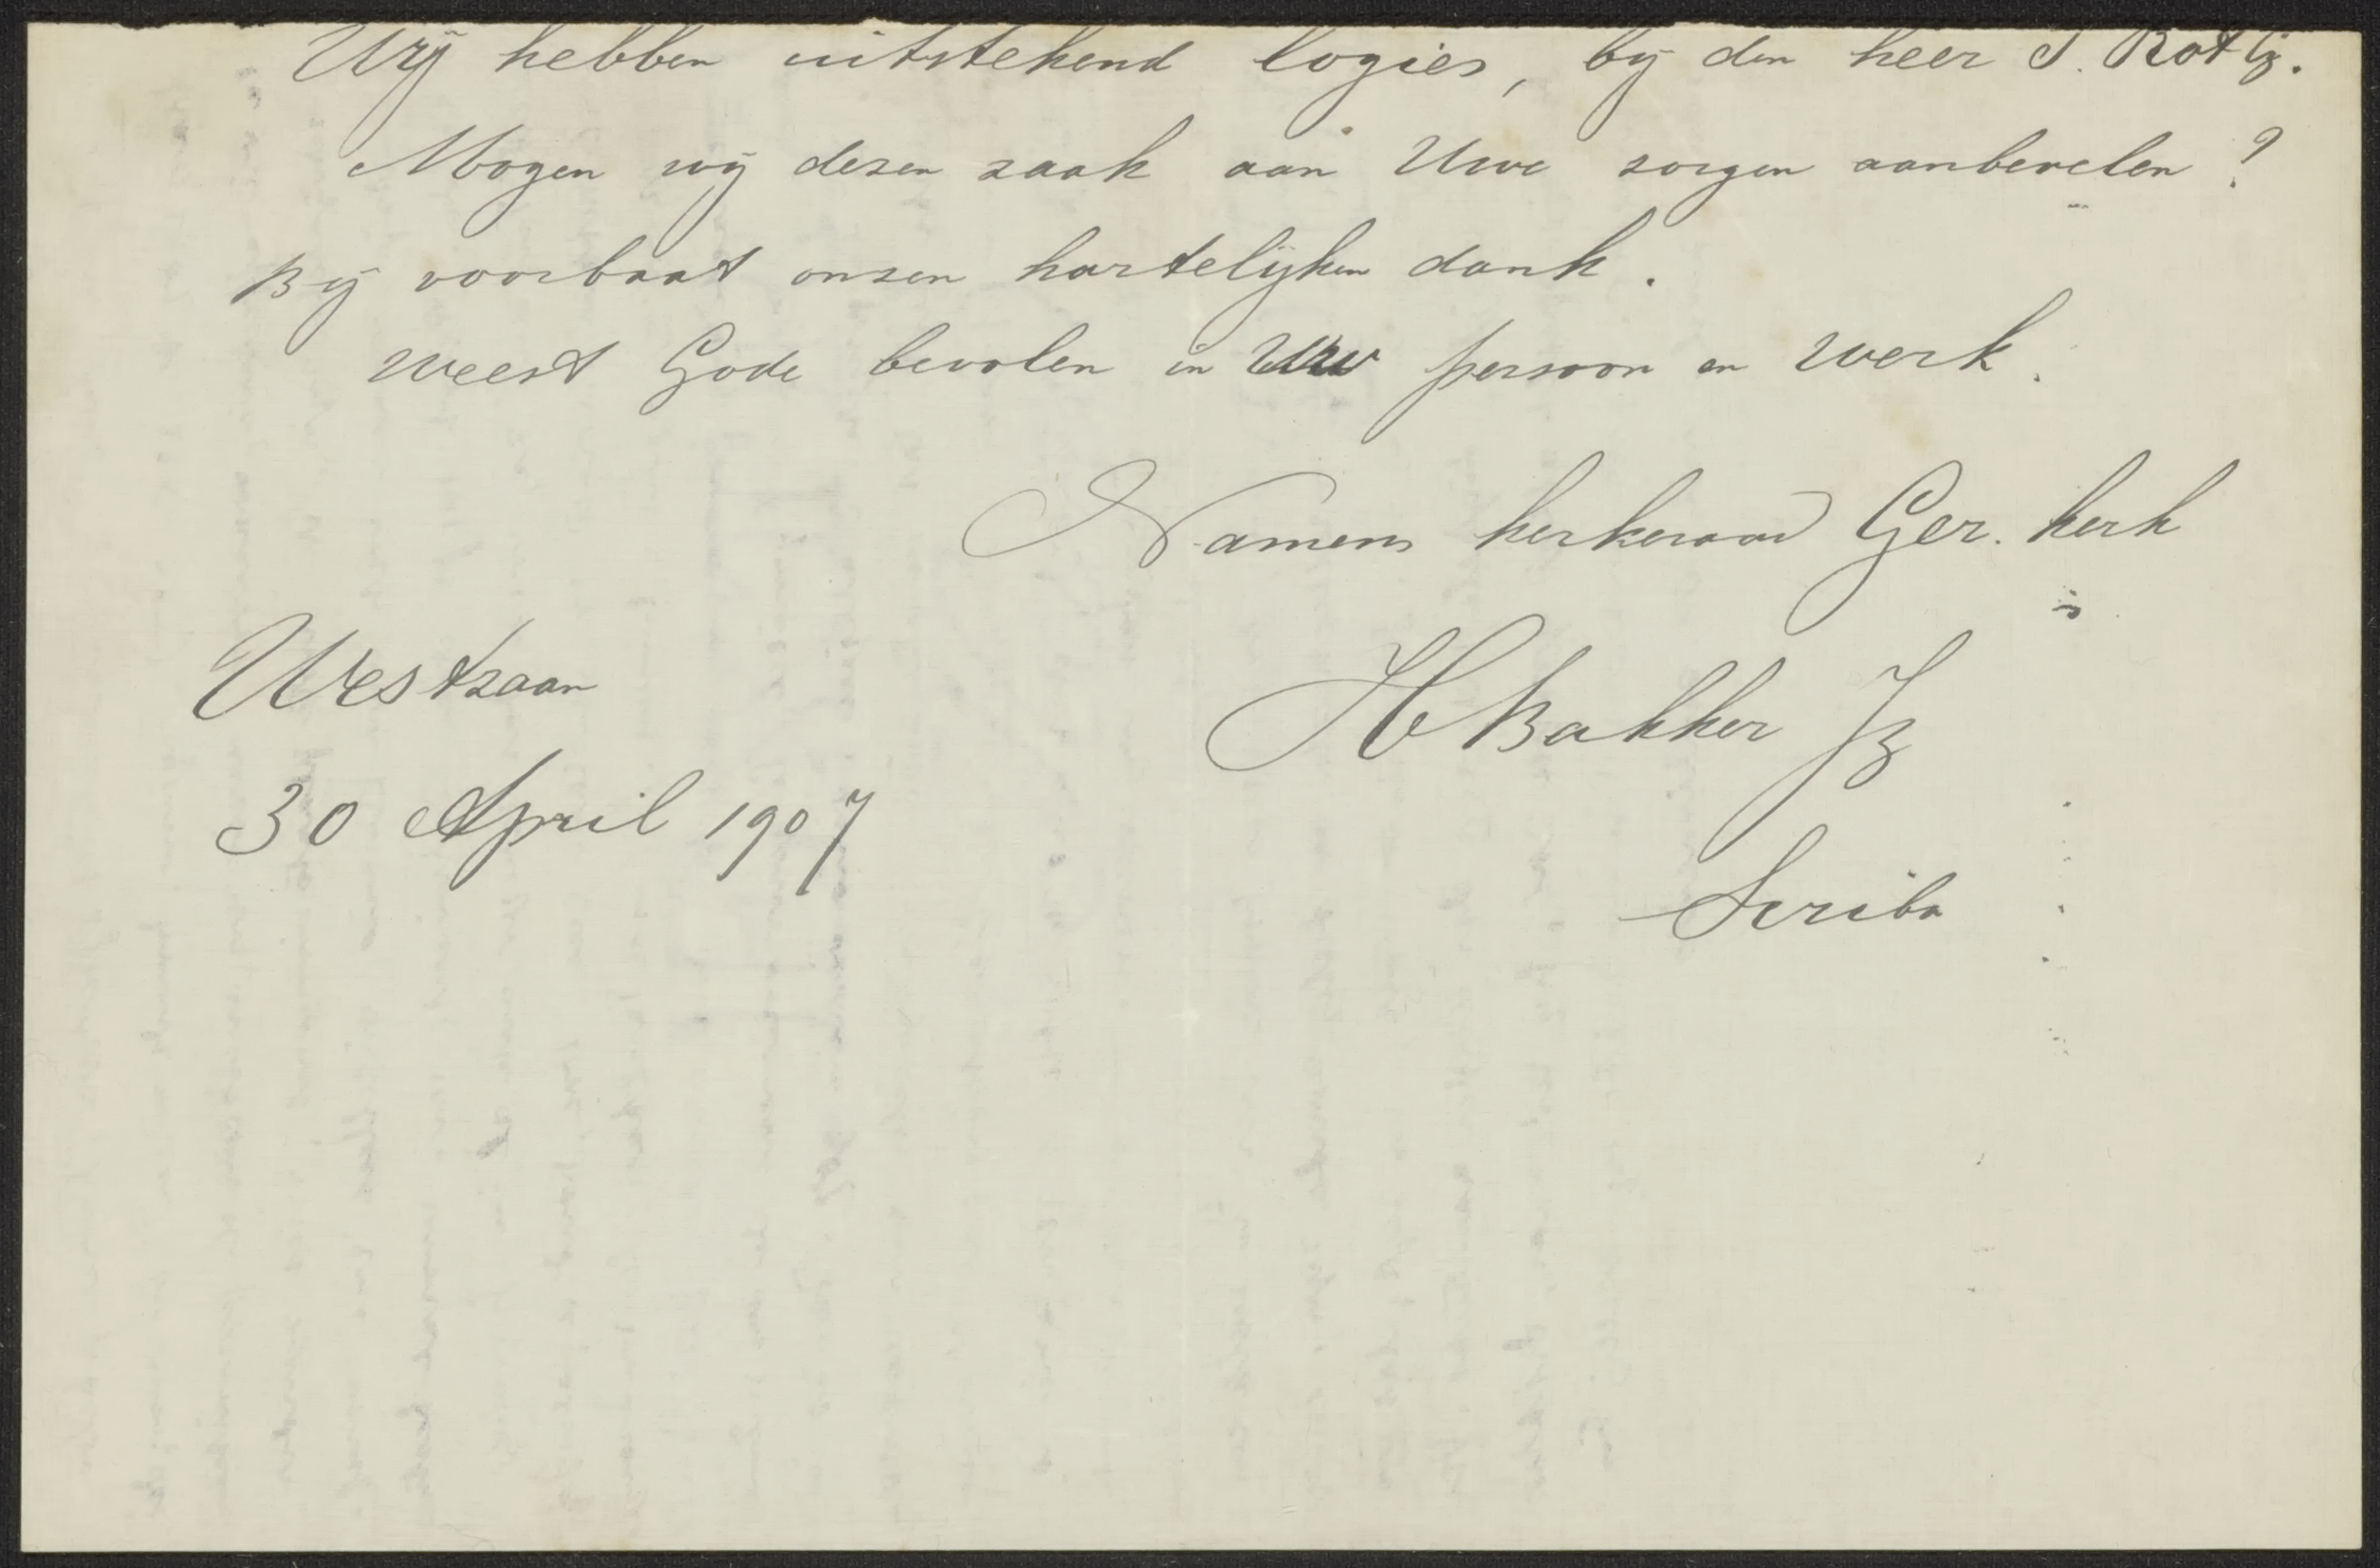 Wij hebben uitstekend logies, bij den heer S. Rot Gz.
Mogen wij dezen zaak aan Uwe zorgen aanbevelen?
Bij voorbaat onzen hartelijken dank.
Weest Gode bevolen in Uw persoon en werk.
Namens kerkeraad Ger. kerk
Westzaan
H Bakker Jz
30 April 1907
Scriba